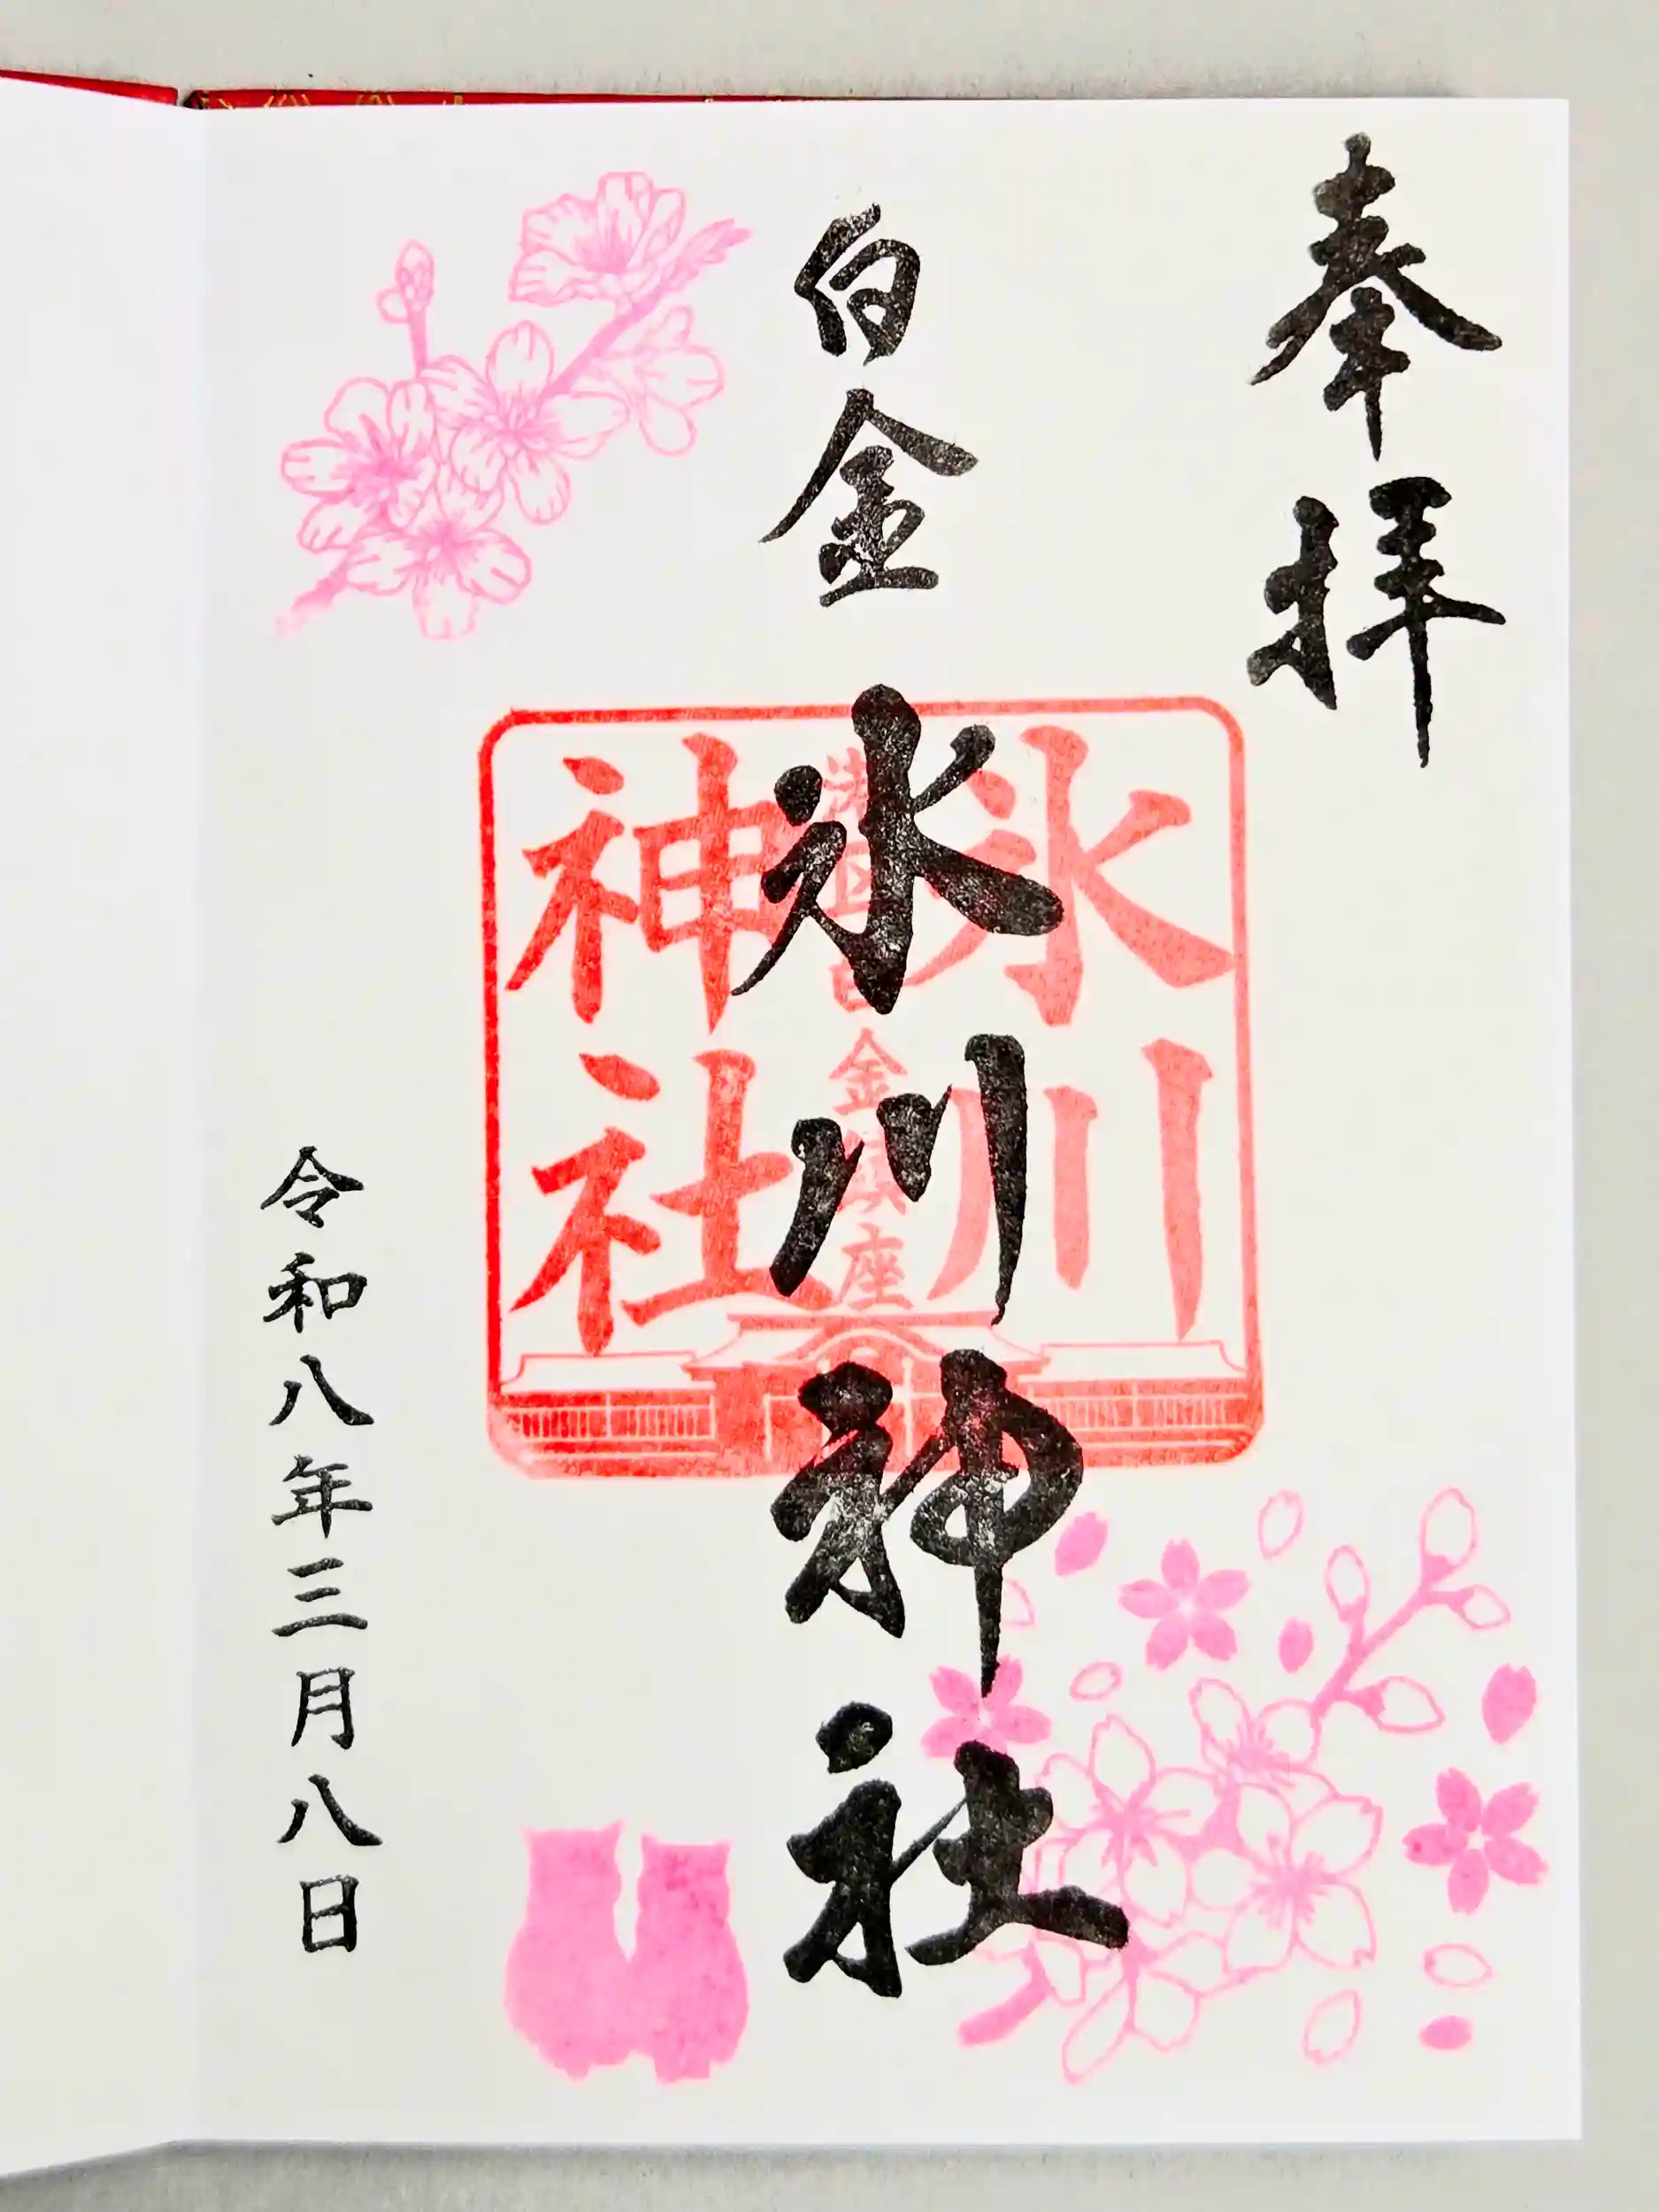 奉拝
白金
氷川神社
氷川
港区白金鎮座
神社
令和八年三月八日